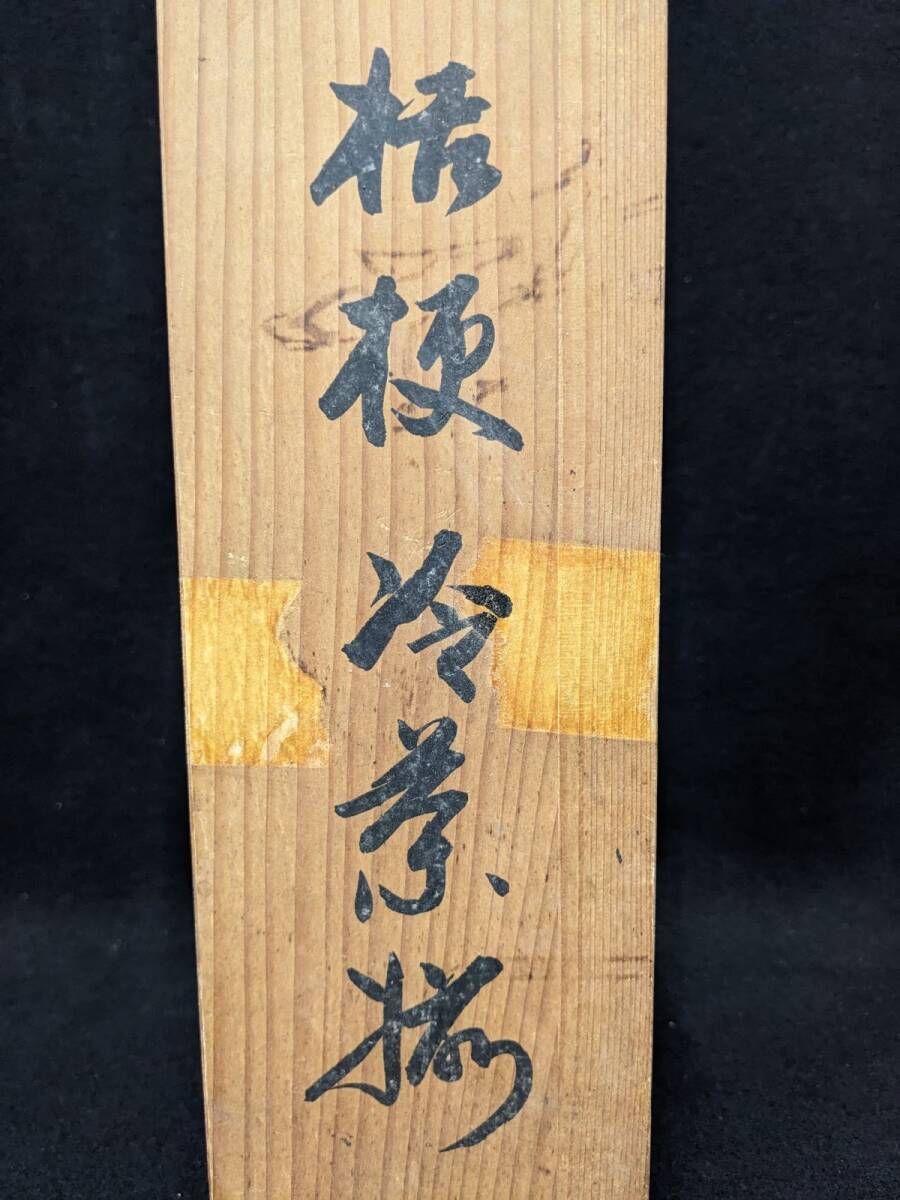 桔梗冷茶揃